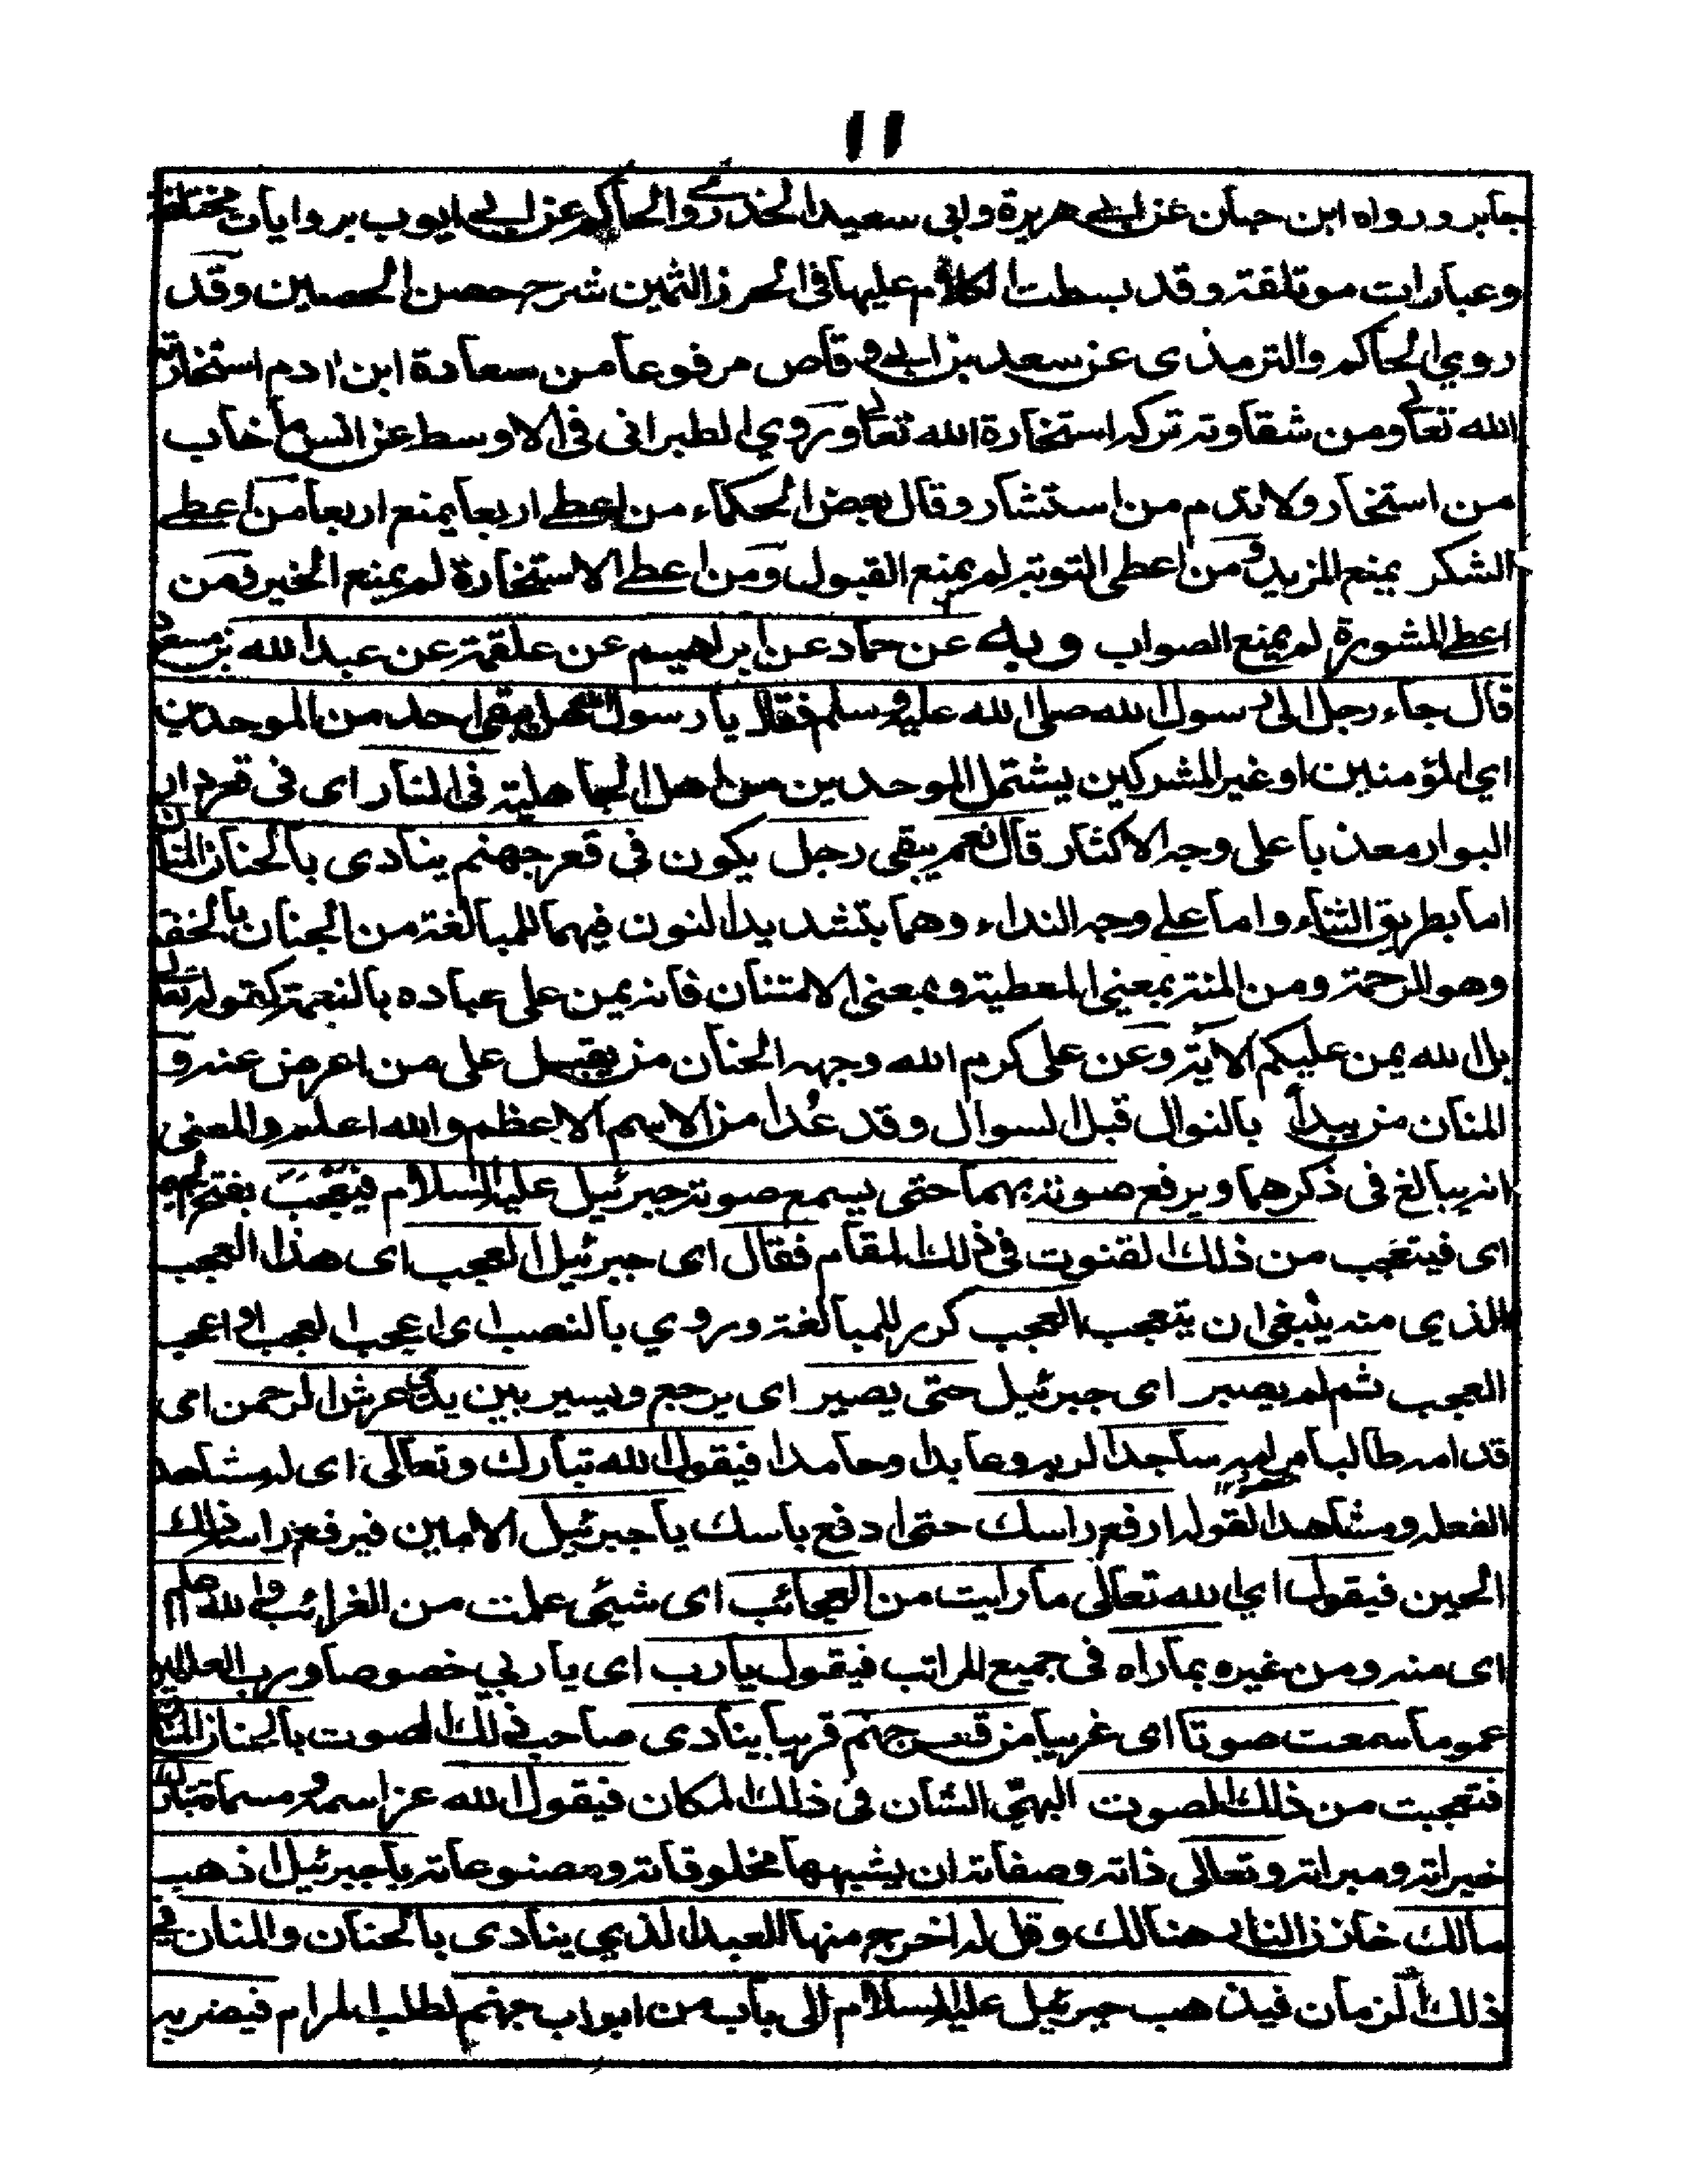 ١١
جابر ورواه ابن حبان عن ابي هريرة وابي سعيد الخدري والحاكم عن ابي ايوب بروايات مختلفة
وعبارات موتلفة وقد بسطت الكلام عليها في الحرز الثمين شرح حصن الحصين وقد
روي الحاكم والترمذي عن سعد بن ابي وقاص مرفوعا من سعادة ابن ادم استخارته
الله تعالى ومن شقاوته تركه استخارة الله تعالى وروي الطبراني في الاوسط عن انس ما خاب
من استخار ولا ندم من استشار وقال بعض الحكماء من اعطي اربعا لم يمنع اربعا من اعطي
الشكر لم يمنع المزيد ومن اعطي التوبة لم يمنع القبول ومن اعطي الاستخارة لم يمنع الخير ومن
اعطي المشورة لم يمنع الصواب وبه عن حماد عن ابراهيم عن علقمة عن عبد الله بن مسعود
قال جاء رجل الى رسول الله صلى الله عليه وسلم فقال يا رسول الله هل يبقى احد من الموحدين
اي المؤمنين او غير المشركين يشتمل الموحدين من اهل الجاهلية في النار اي في قعر دار
البوار معذبا على وجه الاكثار قال نعم يبقى رجل يكون في قعر جهنم ينادى بالحنان المنان
اما بطريق الثناء واما على وجه النداء وهما بتشديد النون فيهما للمبالغة من الحنان بالخفة
وهو الرحمة ومن المنة بمعنى المعطية وبمعنى الامتنان فانه يمن على عباده بالنعمة كقوله تعالى
بل الله يمن عليكم الاية وعن على كرم الله وجهه الحنان من يقبل على من اعرض عنه و
المنان من يبدأ بالنوال قبل السوال وقد عُدا من الاسم الاعظم والله اعلم والمعنى
انه يبالغ في ذكرهما ويرفع صوته بهما حتى يسمع صوته جبرئيل عليه السلام فيتعجب بفتح الجيم
اى فيتعجب من ذلك القنوت في ذلك المقام فقال اى جبرئيل العجب اى هذا العجب
الذي منه ينبغي ان يتعجب العجب كرر للمبالغة وروي بالنصب اى اعجب العجب او اعجب
العجب ثم لم يصبر اى جبرئيل حتى يصير اى يرجع ويسير بين يدي عرش الرحمن اى
قدامه طالبا مرامه ساجدا لربه وعابدا وحامدا فيقول الله تبارك وتعالى اى له مشاهدا
لفعله ومشاهدا لقوله ارفع راسك حتى ادفع باسك يا جبرئيل الامين فيرفع راسه ذلك
الحين فيقول اي الله تعالى ما رايت من العجائب اى شيئ علمت من الغرائب والله اعلم
اى منه ومن غيره بما راه في جميع المراتب فيقول يا رب اى يا ربي خصوصا ورب العلمين
عموما سمعت صوتا اى غريبا من قعر جهنم قريبا ينادى صاحب ذلك الصوت بالحنان المنان
فتعجبت من ذلك الصوت البهيّ الشان في ذلك المكان فيقول الله عز اسمه ومسماه تبارك
خيراته ومبراته وتعالى ذاته وصفاته ان يشبهها مخلوقاته ومصنوعاته يا جبرئيل اذهب الى
مالك خازن النار هنالك وقل له اخرج منها العبد الذي ينادى بالحنان والمنان في
ذلك الزمان فيذهب جبرئيل عليه السلام الى باب من ابواب جهنم لطلب المرام فيضربه